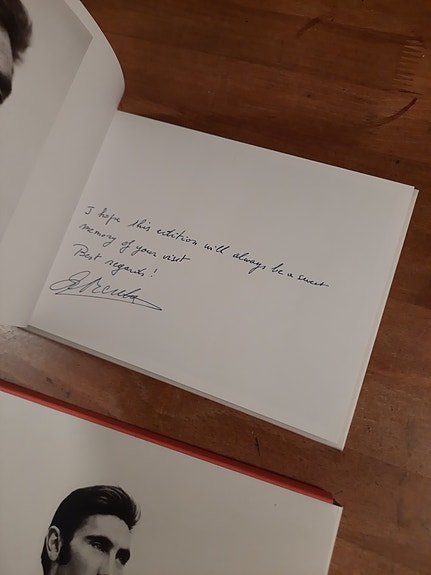 I hope this edition will always be a sweet
memory of your visit
Best regards!